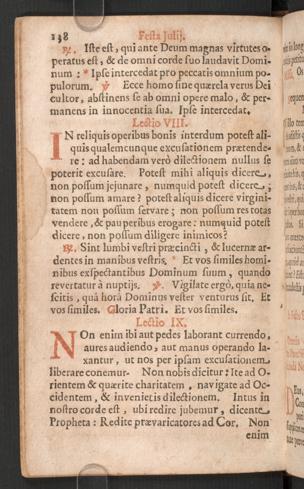 138 Festa Julij.
℟. Iste est, qui ante Deum magnas virtutes o-
peratus est, & de omni corde suo laudavit Domi-
num : * Ipse intercedat pro peccatis omnium po-
pulorum. ℣ Ecce homo sine quærela verus Dei
cultor, abstinens se ab omni opere malo, & per-
manens in innocentia sua. Ipse intercedat.
Lectio VIII.
IN reliquis operibus bonis interdum potest ali-
quis qualemcunque excusationem prætende-
re : ad habendam verò dilectionem nullus se
poterit excusare. Potest mihi aliquis dicere,
non possum jejunare, numquid potest dicere,
non possum amare ? potest aliquis dicere virgini-
tatem non possum servare ; non possum res totas
vendere, & pauperibus erogare : numquid potest
dicere, non possum diligere inimicos ?
℟. Sint lumbi vestri præcincti, & lucernæ ar-
dentes in manibus vestris, * Et vos similes homi-
nibus exspectantibus Dominum suum, quando
revertatur à nuptijs. ℣ Vigilate ergò, quia ne-
scitis, quâ horâ Dominus vester venturus sit. Et
vos similes. Gloria Patri. Et vos similes.
Lectio IX.
NOn enim ibi aut pedes laborant currendo,
aures audiendo, aut manus operando la-
xantur, ut nos per ipsam excusationem
liberare conemur. Non nobis dicitur : Ite ad O-
rientem & quærite charitatem, navigate ad Oc-
cidentem, & invenietis dilectionem. Intus in
nostro corde est, ubi redire jubemur, dicente
Propheta : Redite prævaricatores ad Cor. Non
enim